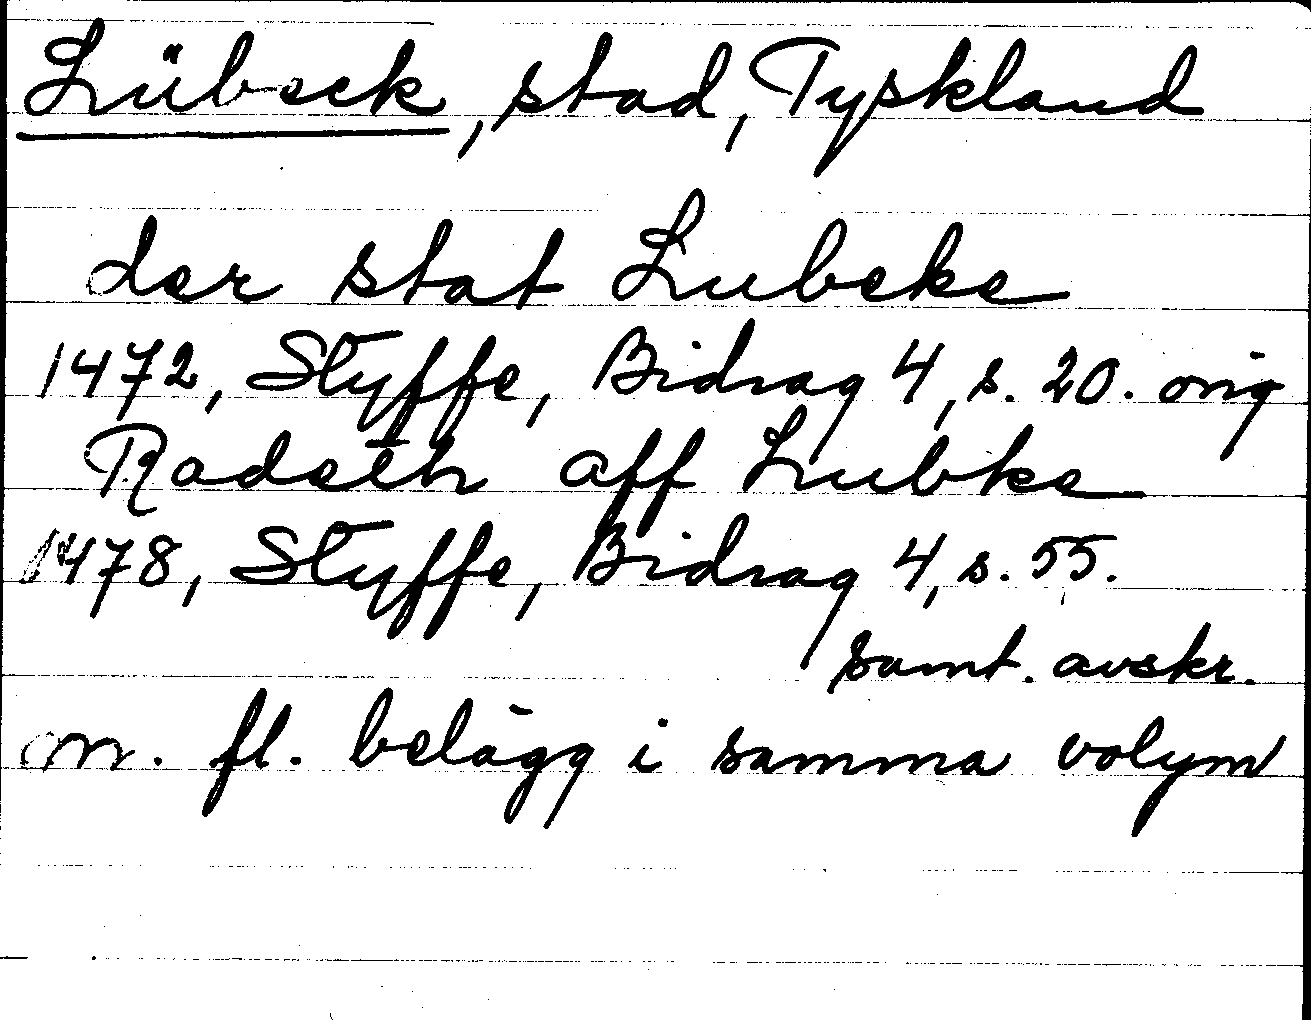 Lübeck, stad, Tyskland
der stat Lubeke
1472, Styffe, Bidrag 4, s. 20. orig
Radeth aff Lubke
1478, Styffe, Bidrag 4, s. 55.
samt. avskr.
m. fl. belägg i samma volym